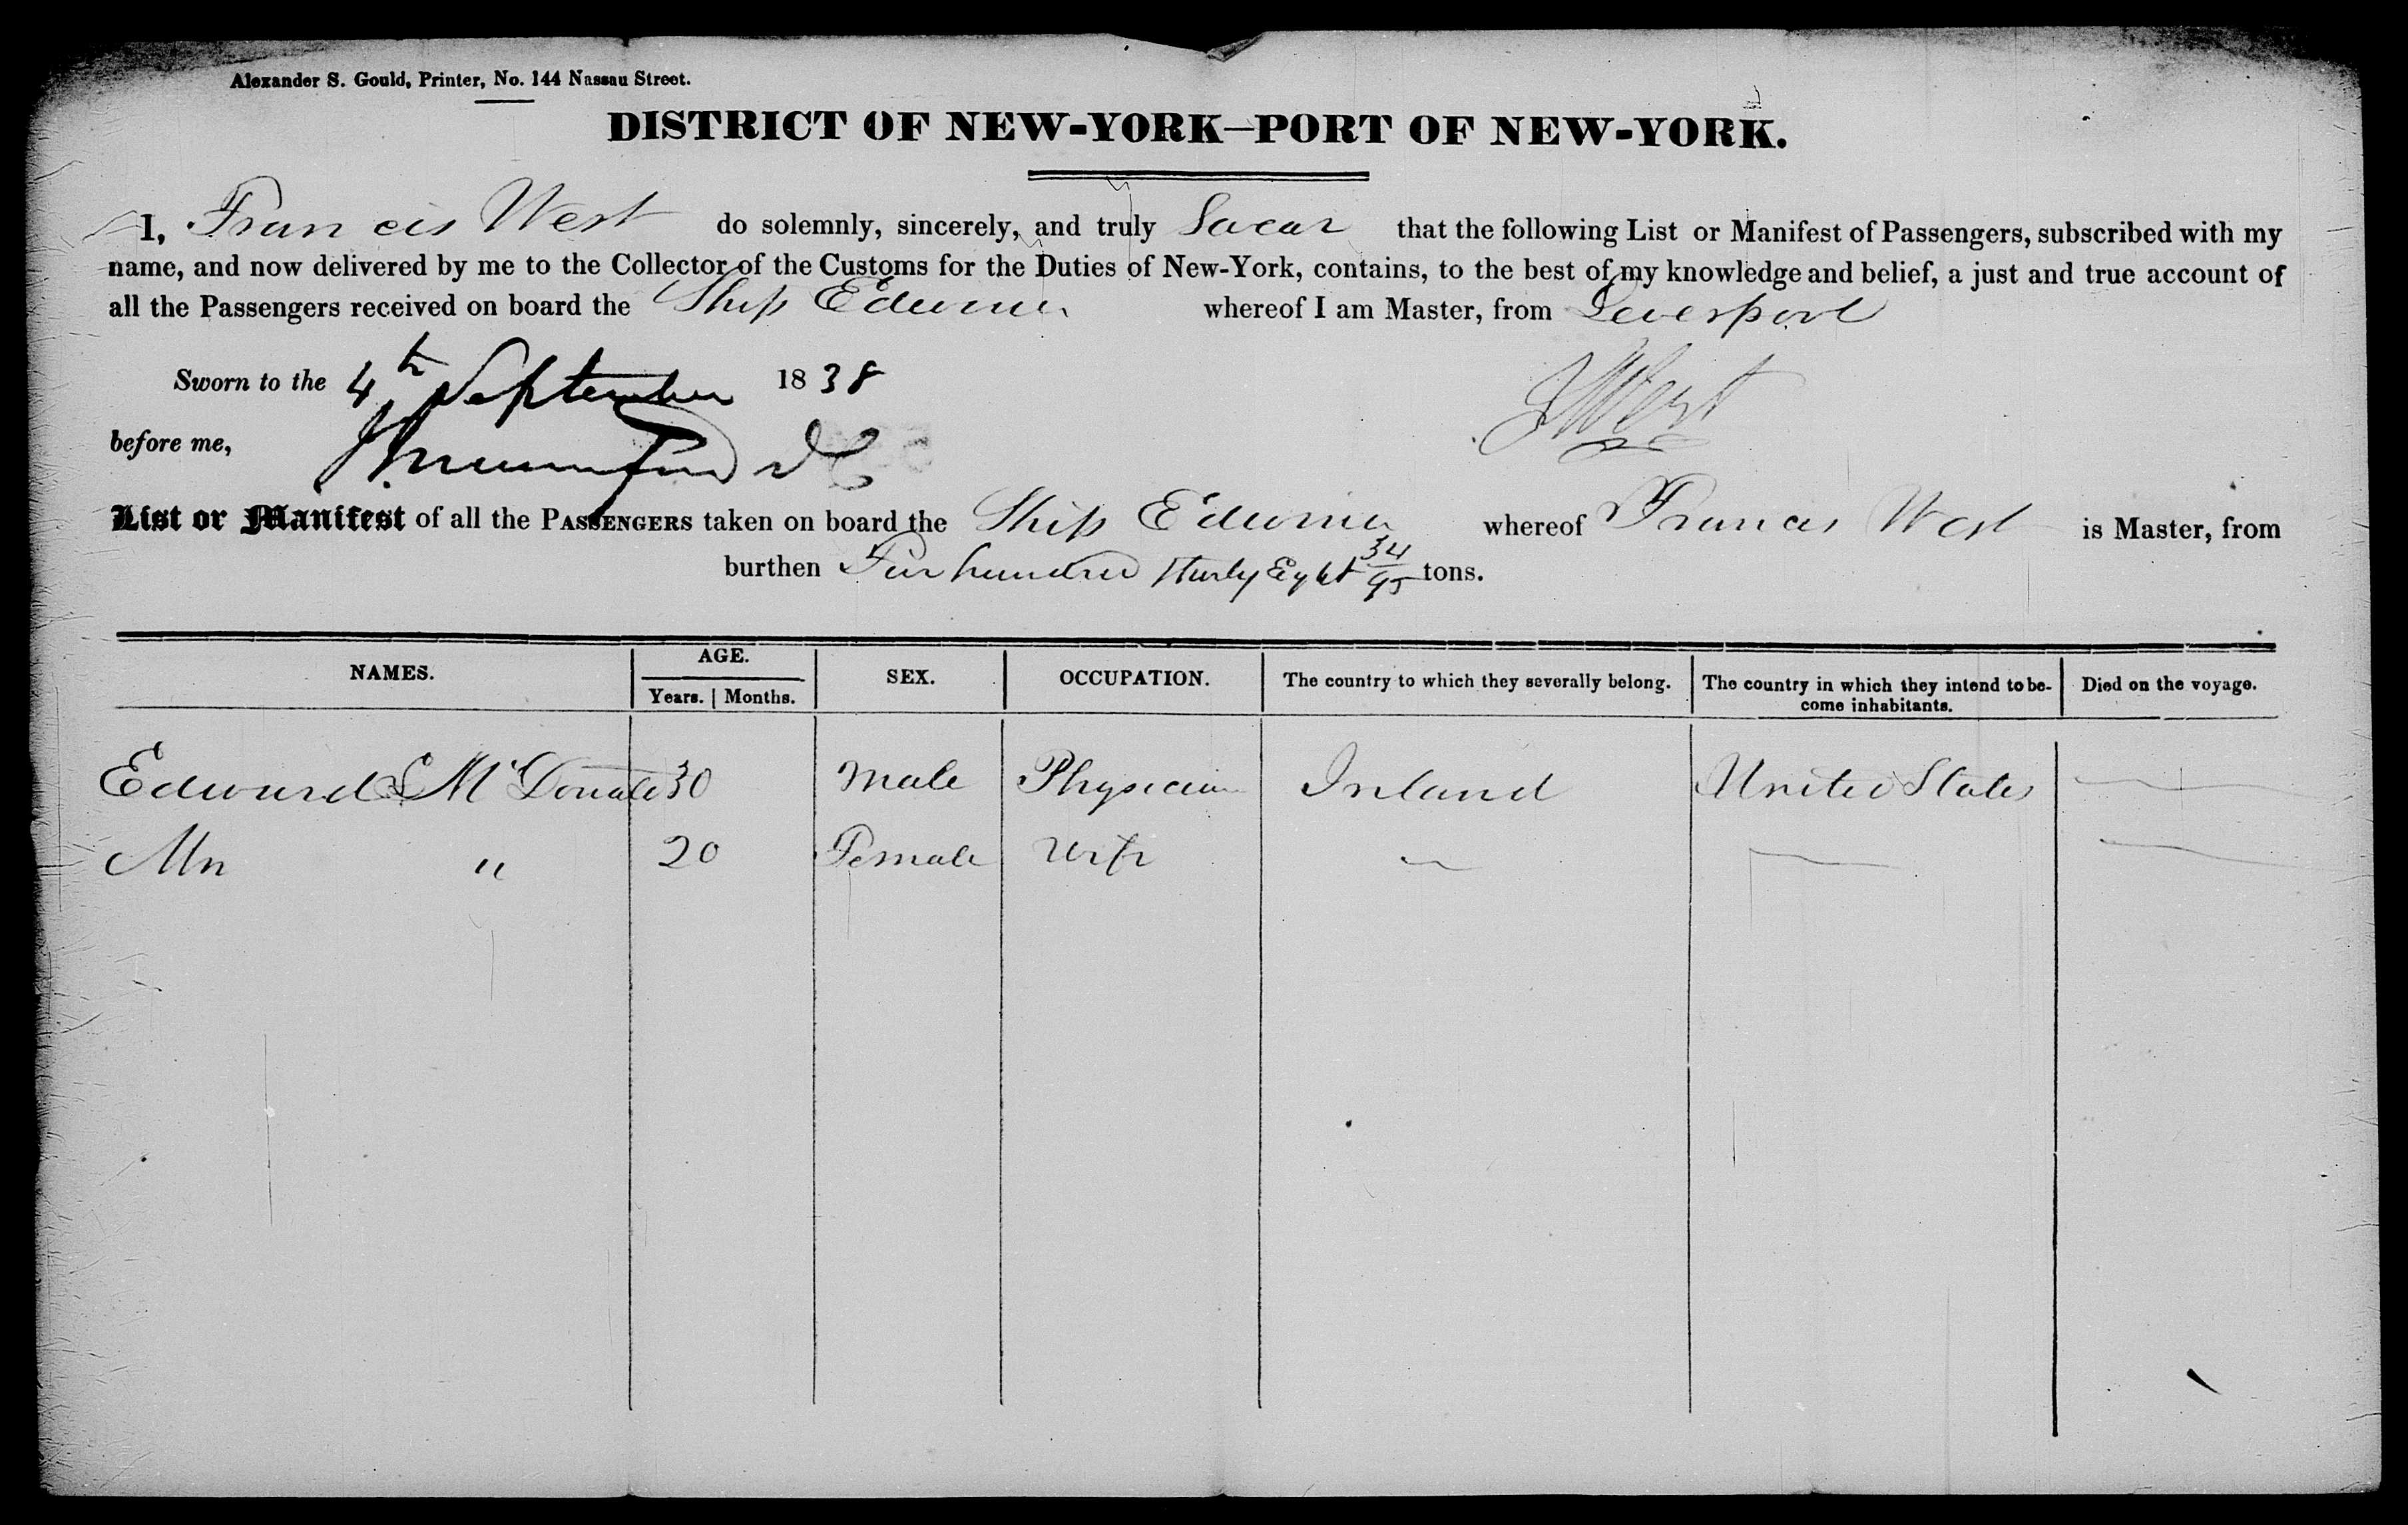 Alexander S. Gould, Printer, No. 144 Nassau Street.
DISTRICT OF NEW-YORK—PORT OF NEW-YORK.
I, Francis West do solemnly, sincerely, and truly Swear that the following List or Manifest of Passengers, subscribed with my
name, and now delivered by me to the Collector of the Customs for the Duties of New-York, contains, to the best of my knowledge and belief, a just and true account of
all the Passengers received on board the Ship Edwina whereof I am Master, from Liverpool
Sworn to the 4th September 1838
F West
before me,
List or Manifest of all the PASSENGERS taken on board the Ship Edwina whereof Francis West is Master, from
burthen hundred Thirty Eight 34/95 tons.
NAMES. AGE. SEX. OCCUPATION. The country to which they severally belong. The country in which they intend to be- Died on the voyage.
Years. | Months. come inhabitants.
Edward S McDonald 30 Male Physician Ireland United States —
Mrs " 20 Female Wife — — —